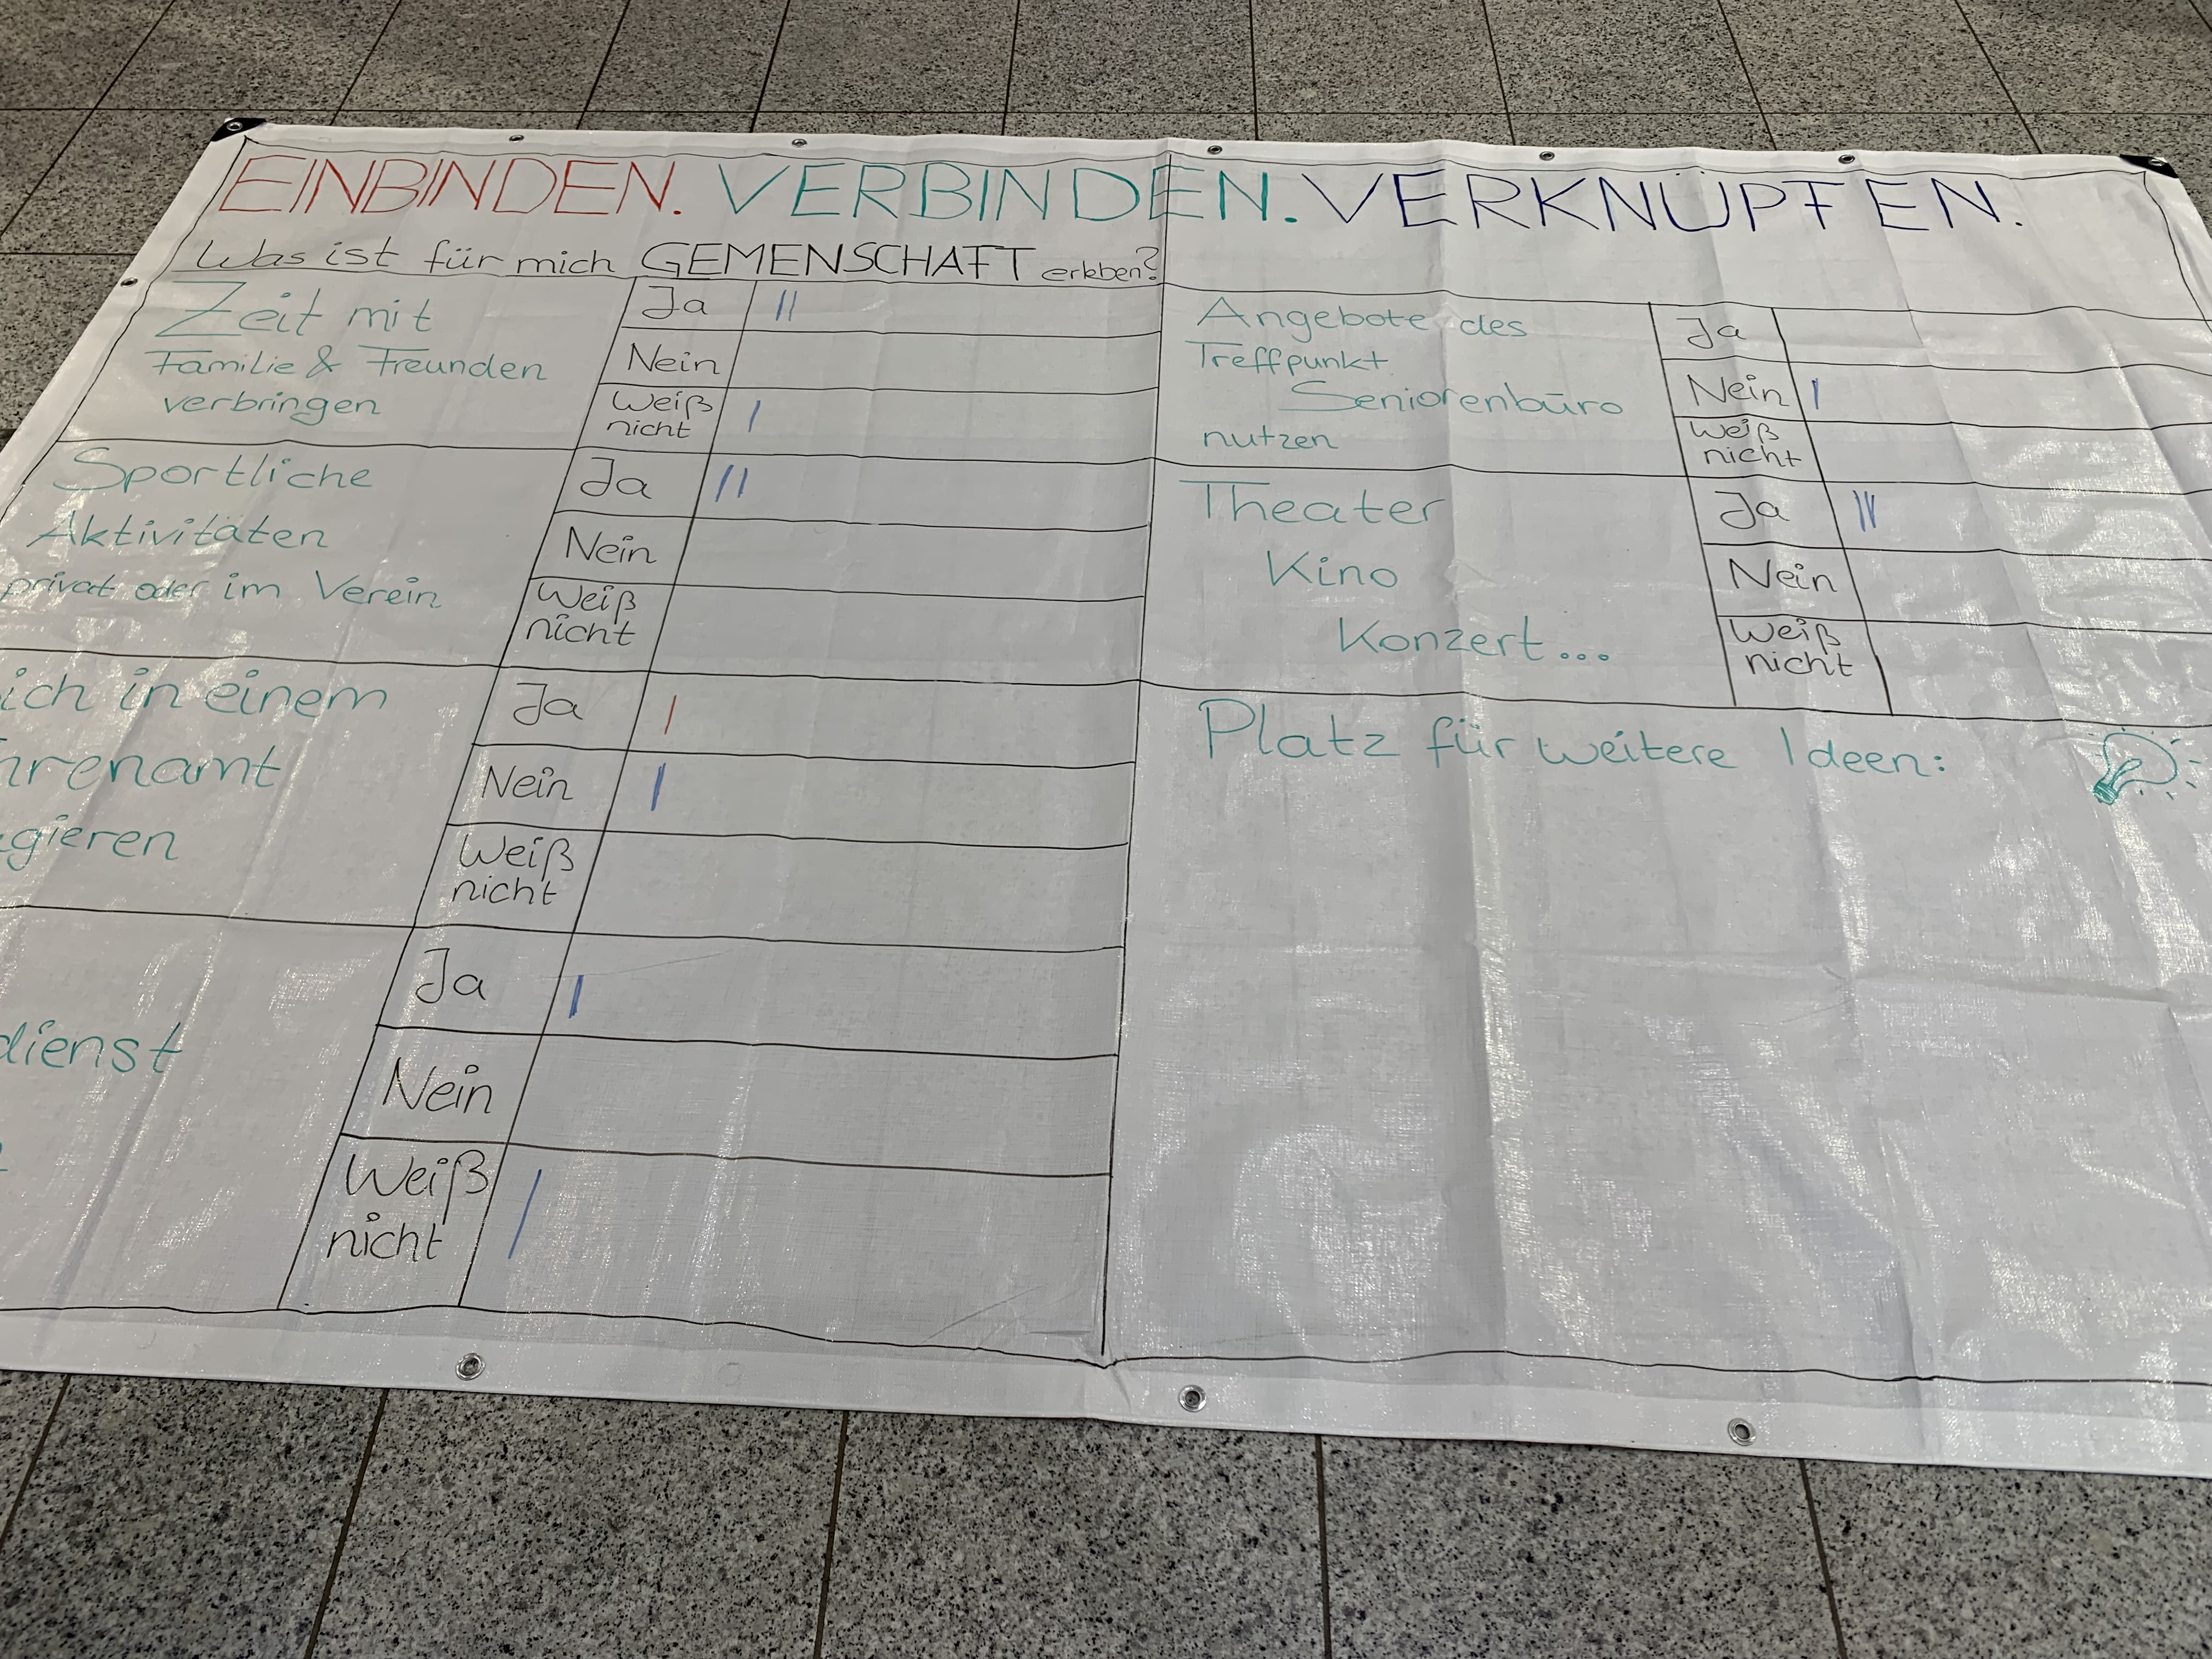 EINBINDEN. VERBINDEN. VERKNÜPFEN.
Was ist für mich GEMENSCHAFT erleben?
Zeit mit
Familie & Freunden
verbringen
Ja
Nein
Weiß
nicht
Sportliche
Aktivitäten
privat oder im Verein
Ja
Nein
Weiß
nicht
ich in einem
hrenamt
gieren
Ja
Nein
Weiß
nicht
dienst
Ja
Nein
Weiß
nicht
Angebote des
Treffpunkt
Seniorenbüro
nutzen
Ja
Nein
Weiß
nicht
Theater
Kino
Konzert...
Ja
Nein
Weiß
nicht
Platz für weitere Ideen: